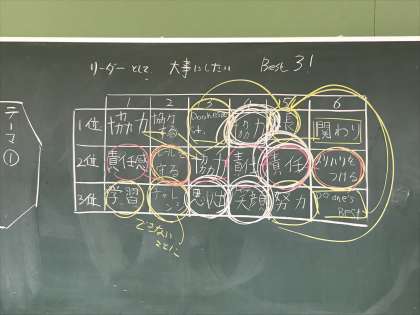 リーダーとして 大事にしたい Best 3!
テーマ①
1 2 3 4 5 6
1位 協力 協力 協力 長 関わり
2位 責任感 協力 責任 責任 メリハリをつける
3位 学習 チャレンジ 思いやり 笑顔 努力 Do one's Best
できないことに